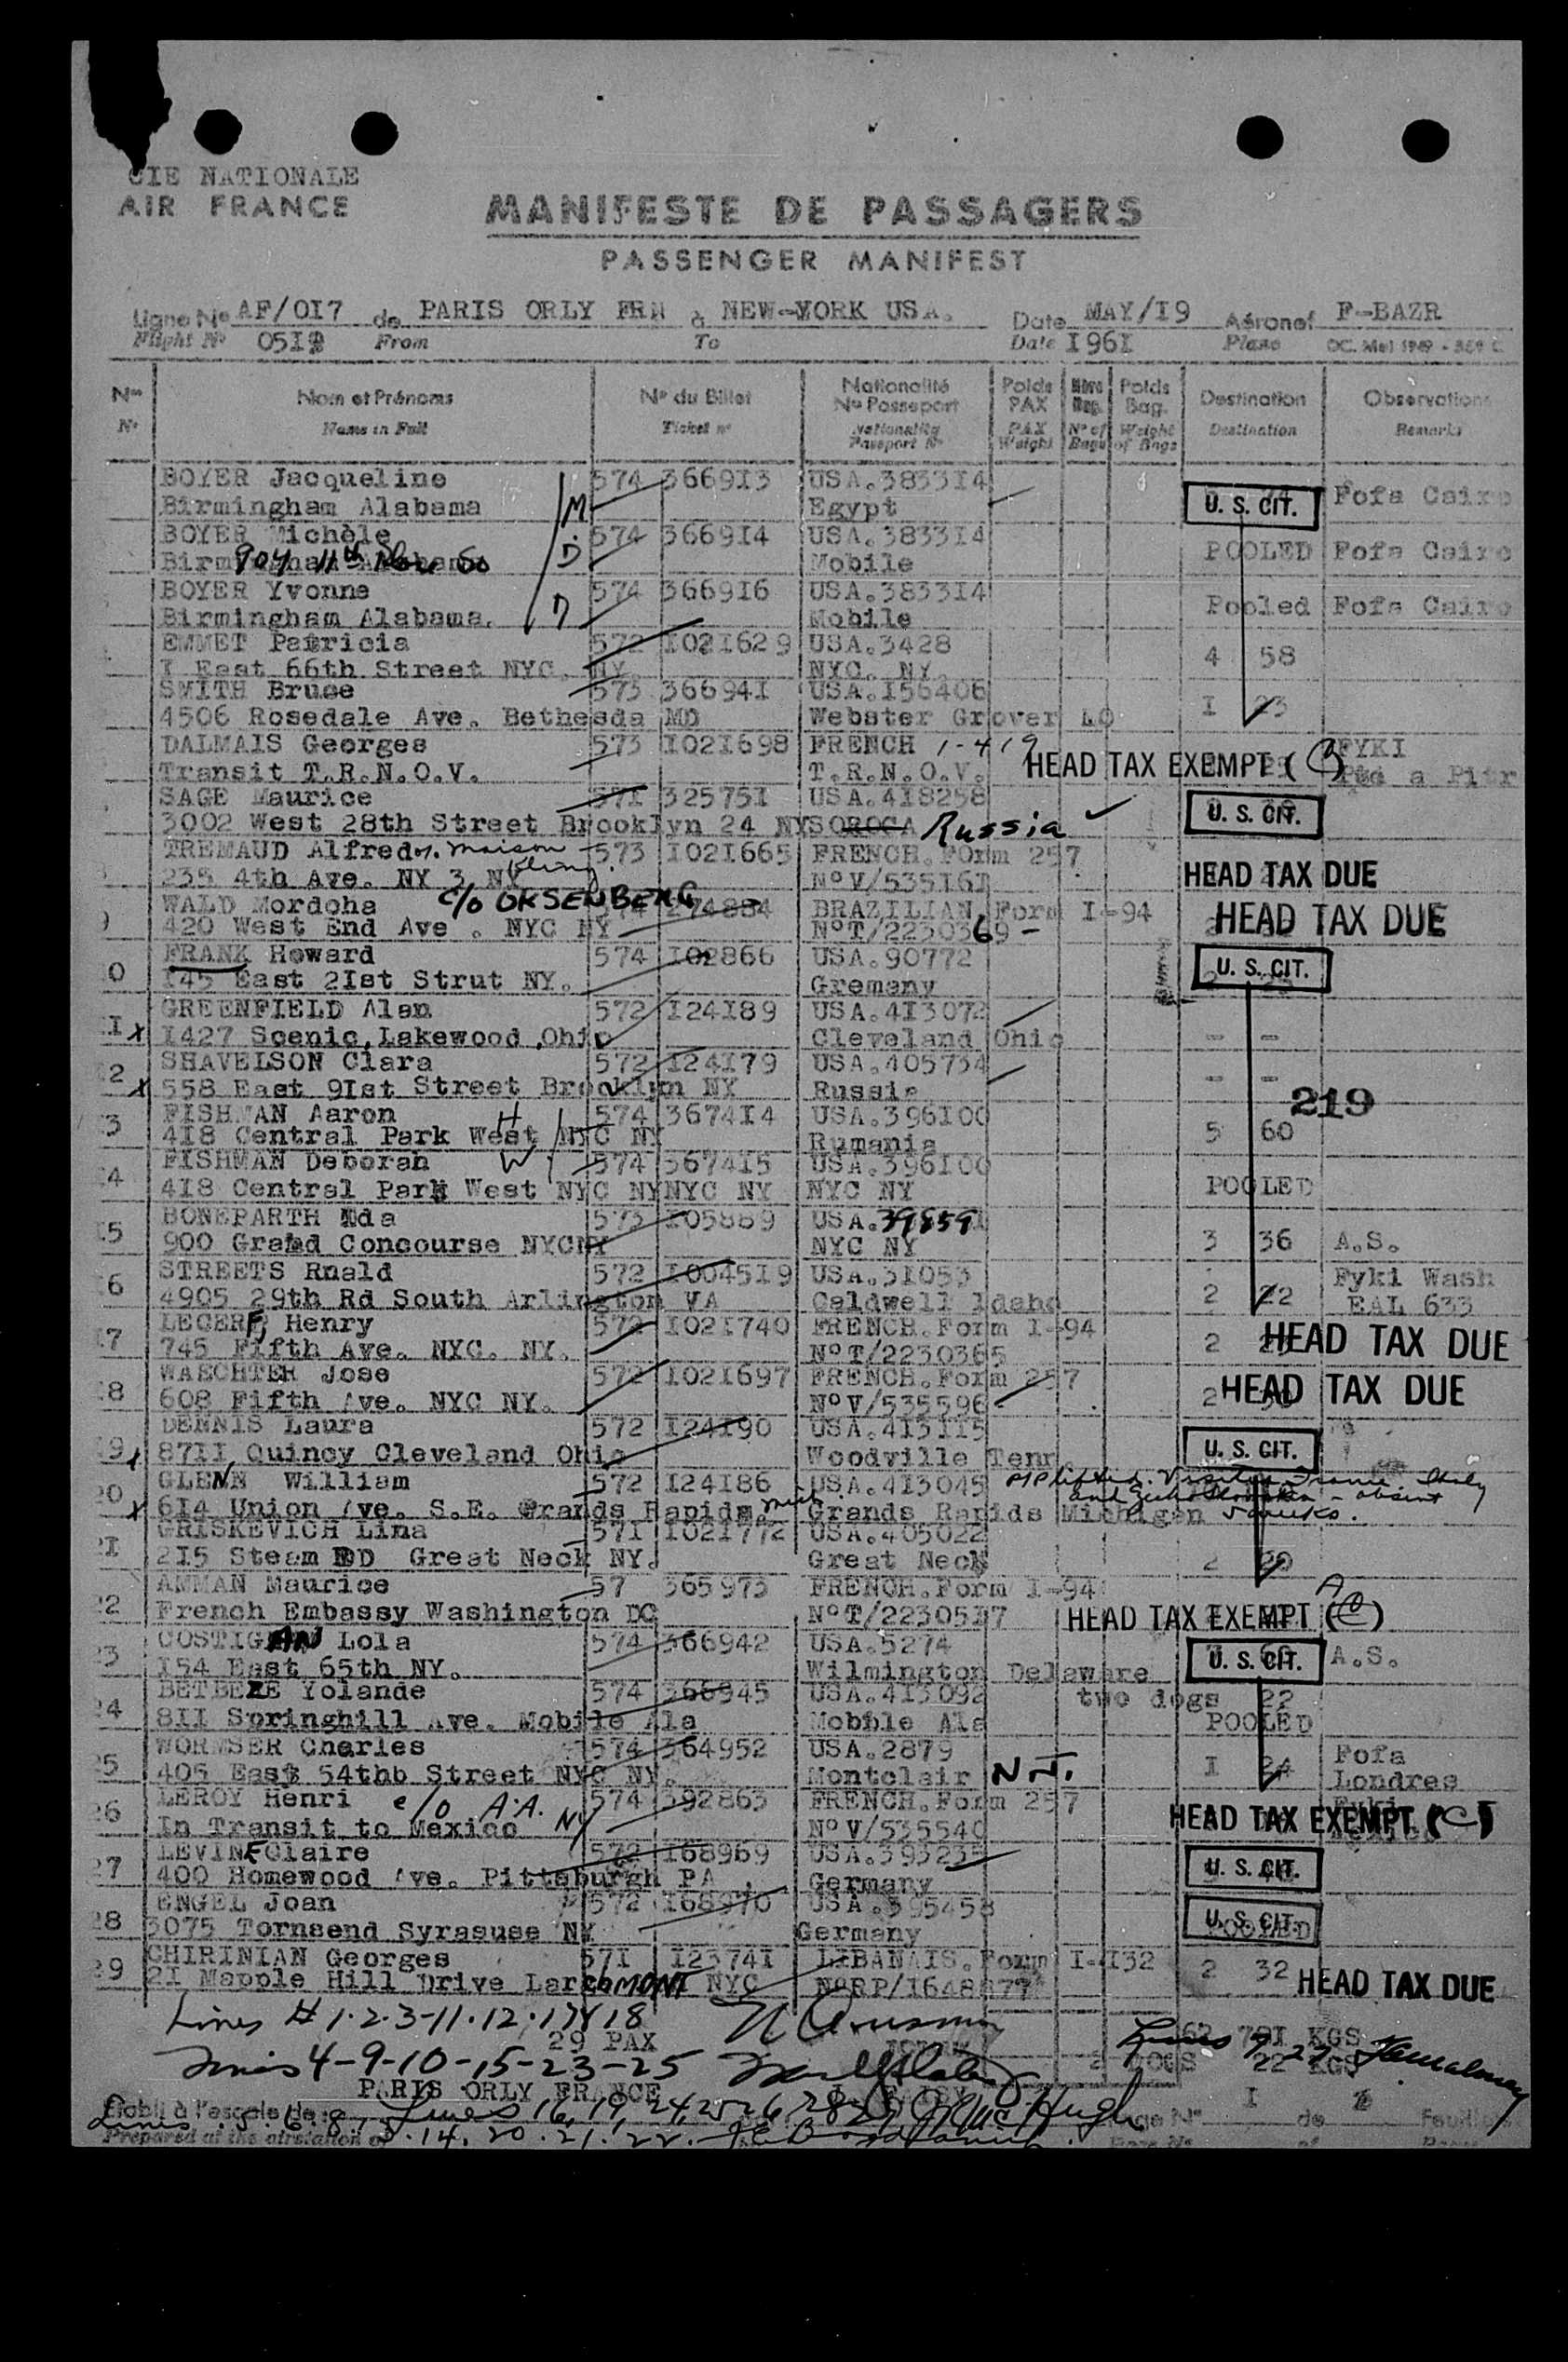 CIE NATIONALE
AIR FRANCE
MANIFESTE DE PASSAGERS
PASSENGER MANIFEST
Ligne No AF/OI7 de PARIS ORLY FRN à NEW-YORK USA. Date MAY/I9 Aéronef F-BAZR
Flight No From To Date I96I Plane
Nos Nom et Prénoms No du Billet Nationalité No Passeport Poids PAX Nbre Bag. Poids Bag. Destination Observations
No Name in Full Ticket no Nationality Passport No PAX Weight No of Bags Weight of Bags Destination Remarks
BOYER Jacqueline 574 3669I3 USA.3833I4
Birmingham Alabama M Egypt U. S. CIT. Fofa Cairo
BOYER Michèle 574 3669I4 USA.3833I4
904 11th So D Mobile POOLED Fofa Cairo
BOYER Yvonne 574 3669I6 USA.3833I4 Pooled Fofa Cairo
Birmingham Alabama. D Mobile
EMMET Patricia 572 I02I629 USA.3428 4 58
I East 66th Street NYC. NY NYC. NY
SMITH Bruce 573 36694I USA.I56406 I 23
4506 Rosedale Ave. Bethesda MD Webster Grover LO
DALMAIS Georges 573 I02I698 FRENCH 1-419 HEAD TAX EXEMPT FYKI
Transit T.R.N.O.V. T.R.N.O.V. a Pitr
SAGE Maurice 57I 32575I USA.4I8258 U. S. CIT.
3002 West 28th Street Brooklyn 24 NY SOROCA Russia
TREMAUD Alfred maison 573 I02I665 FRENCH.FOrm 257 HEAD TAX DUE
235 4th Ave. NY 3 NY No V/535I6I
WALD Mordoha C/o OKSENBERG 574 274884 BRAZILIAN Form I-94 HEAD TAX DUE
9 420 West End Ave . NYC NY NoT/2230369 -
FRANK Howard 574 I02866 USA.90772 U. S. CIT.
0 I45 East 2Ist Strut NY. Gremany
GREENFIELD Alan 572 I24I89 USA.4I3072
I x I427 Scenic,Lakewood,Ohio Cleveland Ohio - -
SHAVELSON Clara 572 I24I79 USA.405734
2 x 558 East 9Ist Street Brooklyn NY Russia - - 219
FISHMAN Aaron H 574 3674I4 USA.396I00
3 4I8 Central Park West NYC NY Rumania 5 60
FISHMAN Deborah W 574 3674I5 USA.396I00
4 4I8 Central Park West NYC NY NYC NY NYC NY POOLED
BONEPARTH Ida 573 I05889 USA.39859I
I5 900 Grand Concourse NYC NY NYC NY 3 36 A.S.
STREETS Rnald 572 I0045I9 USA.3I053 Fyki Wash
6 4905 29th Rd South Arlington VA Caldwell Idaho 2 22 EAL 633
LEGER Henry 572 I02I740 FRENCH.Form I-94
I7 745 Fifth Ave. NYC. NY. NoT/2230365 2 HEAD TAX DUE
WAECHTER Jose 572 I02I697 FRENCH.Form 257
I8 608 Fifth Ave. NYC NY. NoV/535596 2 HEAD TAX DUE
DENNIS Laura 572 I24I90 USA.4I3II5
I9 x 87II Quincy Cleveland Ohio Woodville Tenn U. S. CIT.
GLENN William 572 I24I86 USA.4I3045 PP lifted. Visited France Italy
20 x 6I4 Union Ave. S.E. Grands Rapids. Mich. Grands Rapids Michigan and - absent 5 weeks.
GRISKEVICH Lina 57I I02I772 USA.405022
2I 2I5 Steam RD Great Neck NY. Great Neck 2 20
AMMAN Maurice 57 365973 FRENCH.Form I-94
22 French Embassy Washington DC NoT/22305I7 HEAD TAX EXEMPT
COSTIGAN Lola 574 366942 USA.5274
23 I54 East 65th NY. Wilmington Delaware U. S. CIT. A.S.
BETBEZE Yolande 574 366945 USA.4I3092 two dogs 22
24 8II Springhill Ave. Mobile Ala Mobile Ala POOLED
WORMSER Charles 574 364952 USA.2879 Fofa
25 405 East 54thb Street NYC NY. Montclair N.J. I 24 Londres
LEROY Henri c/o A.A. 574 392863 FRENCH.Form 257 Fyki
26 In Transit to Mexico NY NoV/535540 HEAD TAX EXEMPT (C)
LEVINE Claire 572 I68969 USA.393235
27 400 Homewood Ave. Pittsburgh PA . Germany U. S. CIT.
ENGEL Joan 572 I68970 USA.395458
28 3075 Tornsend Syrasuse NY Germany U. S. CIT. POOLED
CHIRINIAN Georges 57I I2374I LIBANAIS.Form I-I32
29 2I Mapple Hill Drive LarchMONT NYC NoRP/I648877 2 32 HEAD TAX DUE
Lines # 1-2-3-11-12-17&18
29 PAX KGS
Lines 4-9-10-15-23-25 22 KGS
PARIS ORLY FRANCE
Etabli à l'escale de Lines 16, 19, 24, Page No I de Feuillets
Prepared at the airstation of 14. 20. 21. 22.